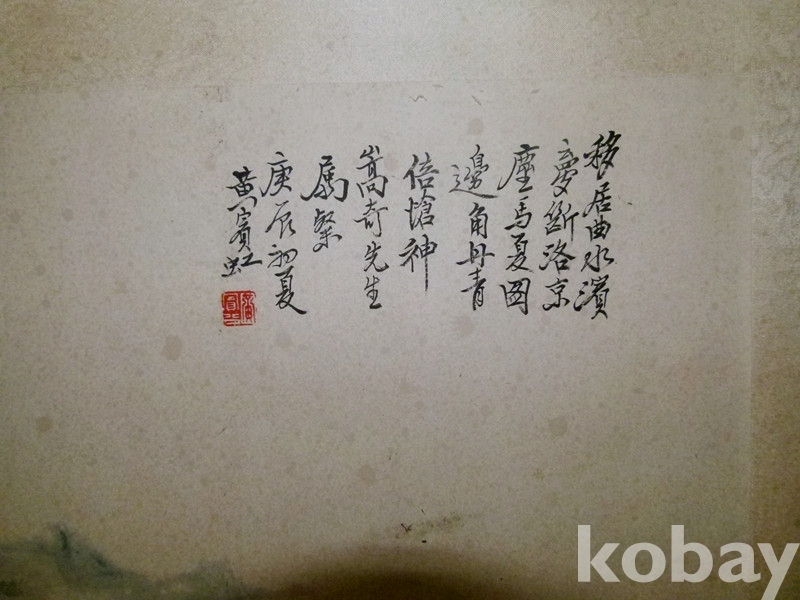 移居曲水濱
夢斷洛京
塵馬夏圖
邊角丹青
倍愴神
嵩奇先生
屬粲
庚辰初夏
黃賓虹
kobay